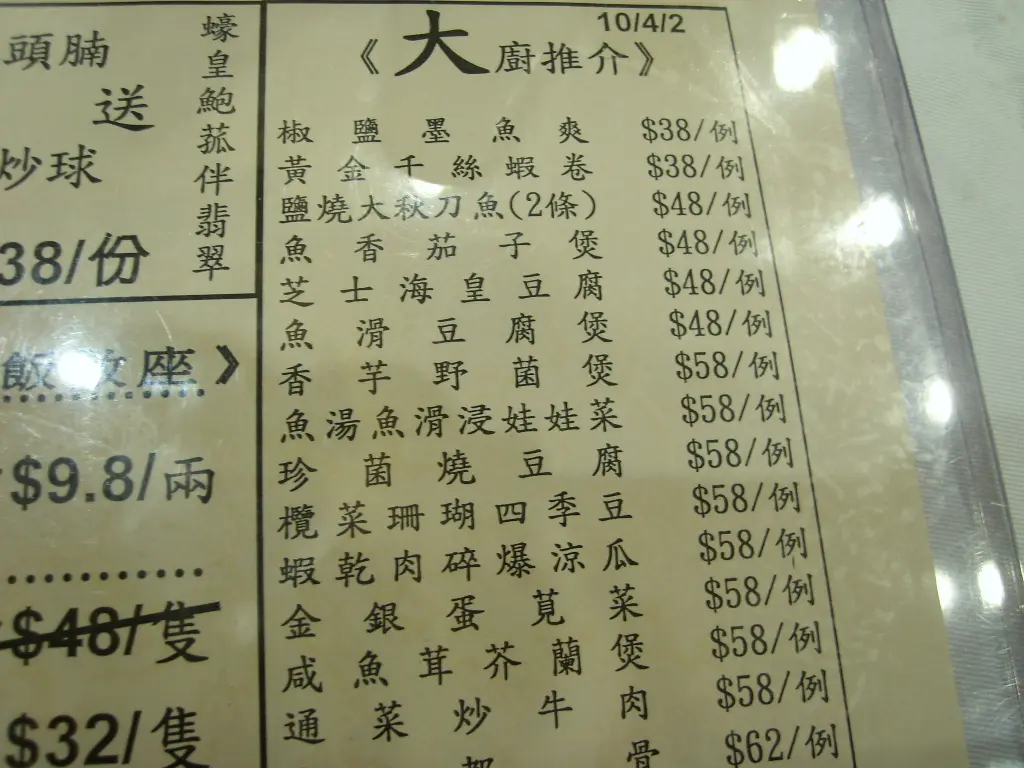 頭腩
送
炒球
38/份
蠔皇鮑菰伴翡翠
座》
$9.8/兩
$48/隻
$32/隻
10/4/2
《大廚推介》
椒鹽墨魚爽 $38/例
黃金千絲蝦卷 $38/例
鹽燒大秋刀魚(2條) $48/例
魚香茄子煲 $48/例
芝士海皇豆腐 $48/例
魚滑豆腐煲 $48/例
香芋野菌煲 $58/例
魚湯魚滑浸娃娃菜 $58/例
珍菌燒豆腐 $58/例
欖菜珊瑚四季豆 $58/例
蝦乾肉碎爆涼瓜 $58/例
金銀蛋莧菜 $58/例
咸魚茸芥蘭煲 $58/例
通菜炒牛肉 $58/例
骨 $62/例